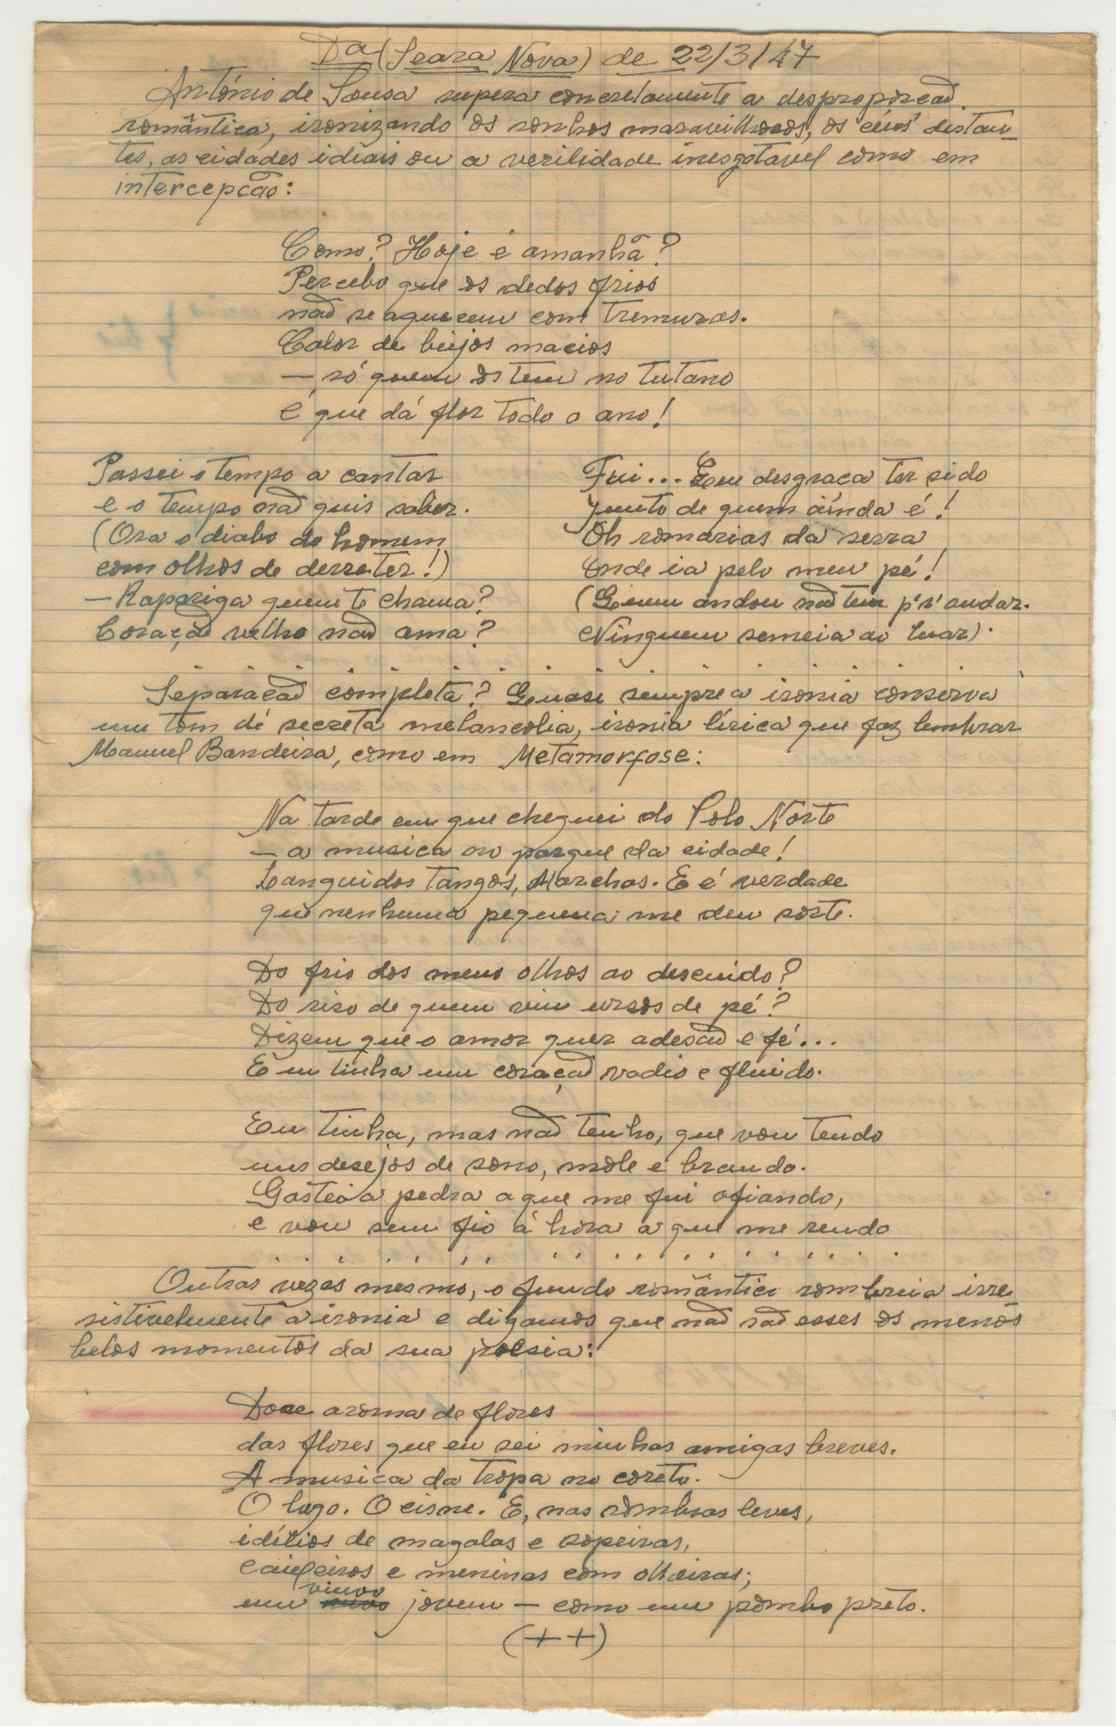 Da (Seara Nova) de 22/3/47
António de Sousa supera concretamente a desproporção
romântica, ironizando os sonhos maravilhosos, os céus distan-
tes, as cidades idiais ou a verilidade inesgotavel como em
intercepção:
Como? Hoje é amanhã?
Percebo que os dedos frios
não se aquecem com tremuras.
Calor de beijos macios
— só quem os tem no tutano
é que dá flor todo o ano!
Passei o tempo a cantar
e o tempo não quis saber.
(Ora o diabo do homem
com olhos de derreter!)
— Rapariga quem te chama?
Coração velho não ama?
Fui... Que desgraça ter sido
junto de quem áinda é!
Oh romarias da serra
Onde ia pelo meu pé!
(Quem andou não tem p'r'andar.
Ninguem semeia ao luar).
. . . . . . . . . . . . . . . .
Separação completa? Quasi sempre a ironia conserva
um tom de secreta melancolia, ironia lírica que faz lembrar
Manuel Bandeira, como em Metamorfose:
Na tarde em que cheguei do Polo Norte
— a musica no parque da cidade!
Languidos tangos, Marchas. E é verdade
que nenhuma pequena me deu sorte.
Do frio dos meus olhos ao descuido?
Do riso de quem viu ursos de pé?
Dizem que o amor quer adesão e fé...
E eu tinha um coração vadio e fluido.
Eu tinha, mas não tenho, que vou tendo
uns desejos de sono, mole e brando.
Gastei a pedra a que me fui afiando,
e vou sem fio à hora a que me rendo
. . . . . . . . . . . . . . . .
Outras vezes mesmo, o fundo romântico rombeia irre
sistivelmente a ironia e digamos que não são esses os menos
belos momentos da sua poesia:
Doce aroma de flores
das flores que eu sei minhas amigas breves.
A musica da tropa no coreto.
O lago. O cisne. E, nas sombras leves,
idílios de magalas e sopeiras,
caixeiros e meninas com olheiras;
um viuvo jovem — como um pombo preto.
(++)